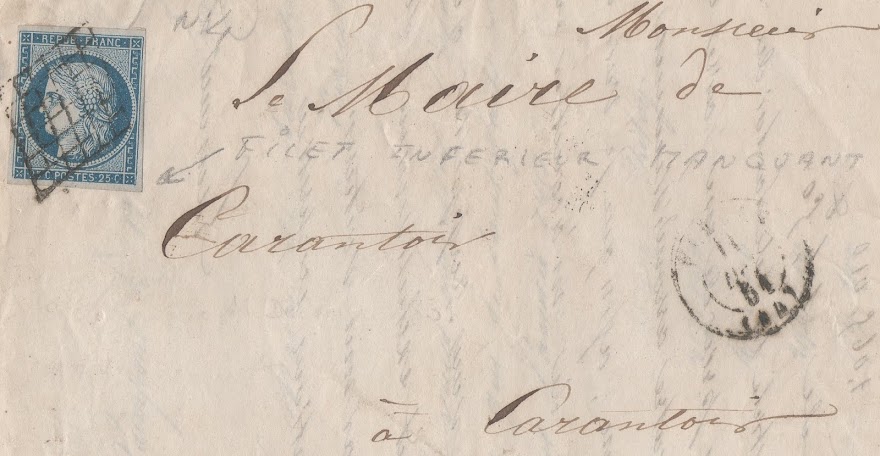 REPUB. FRANC.
Monsieur
Le Maire de
FILET INFERIEUR MANQUANT
C POSTES 25 C
Carantoir
51
à Carantoir